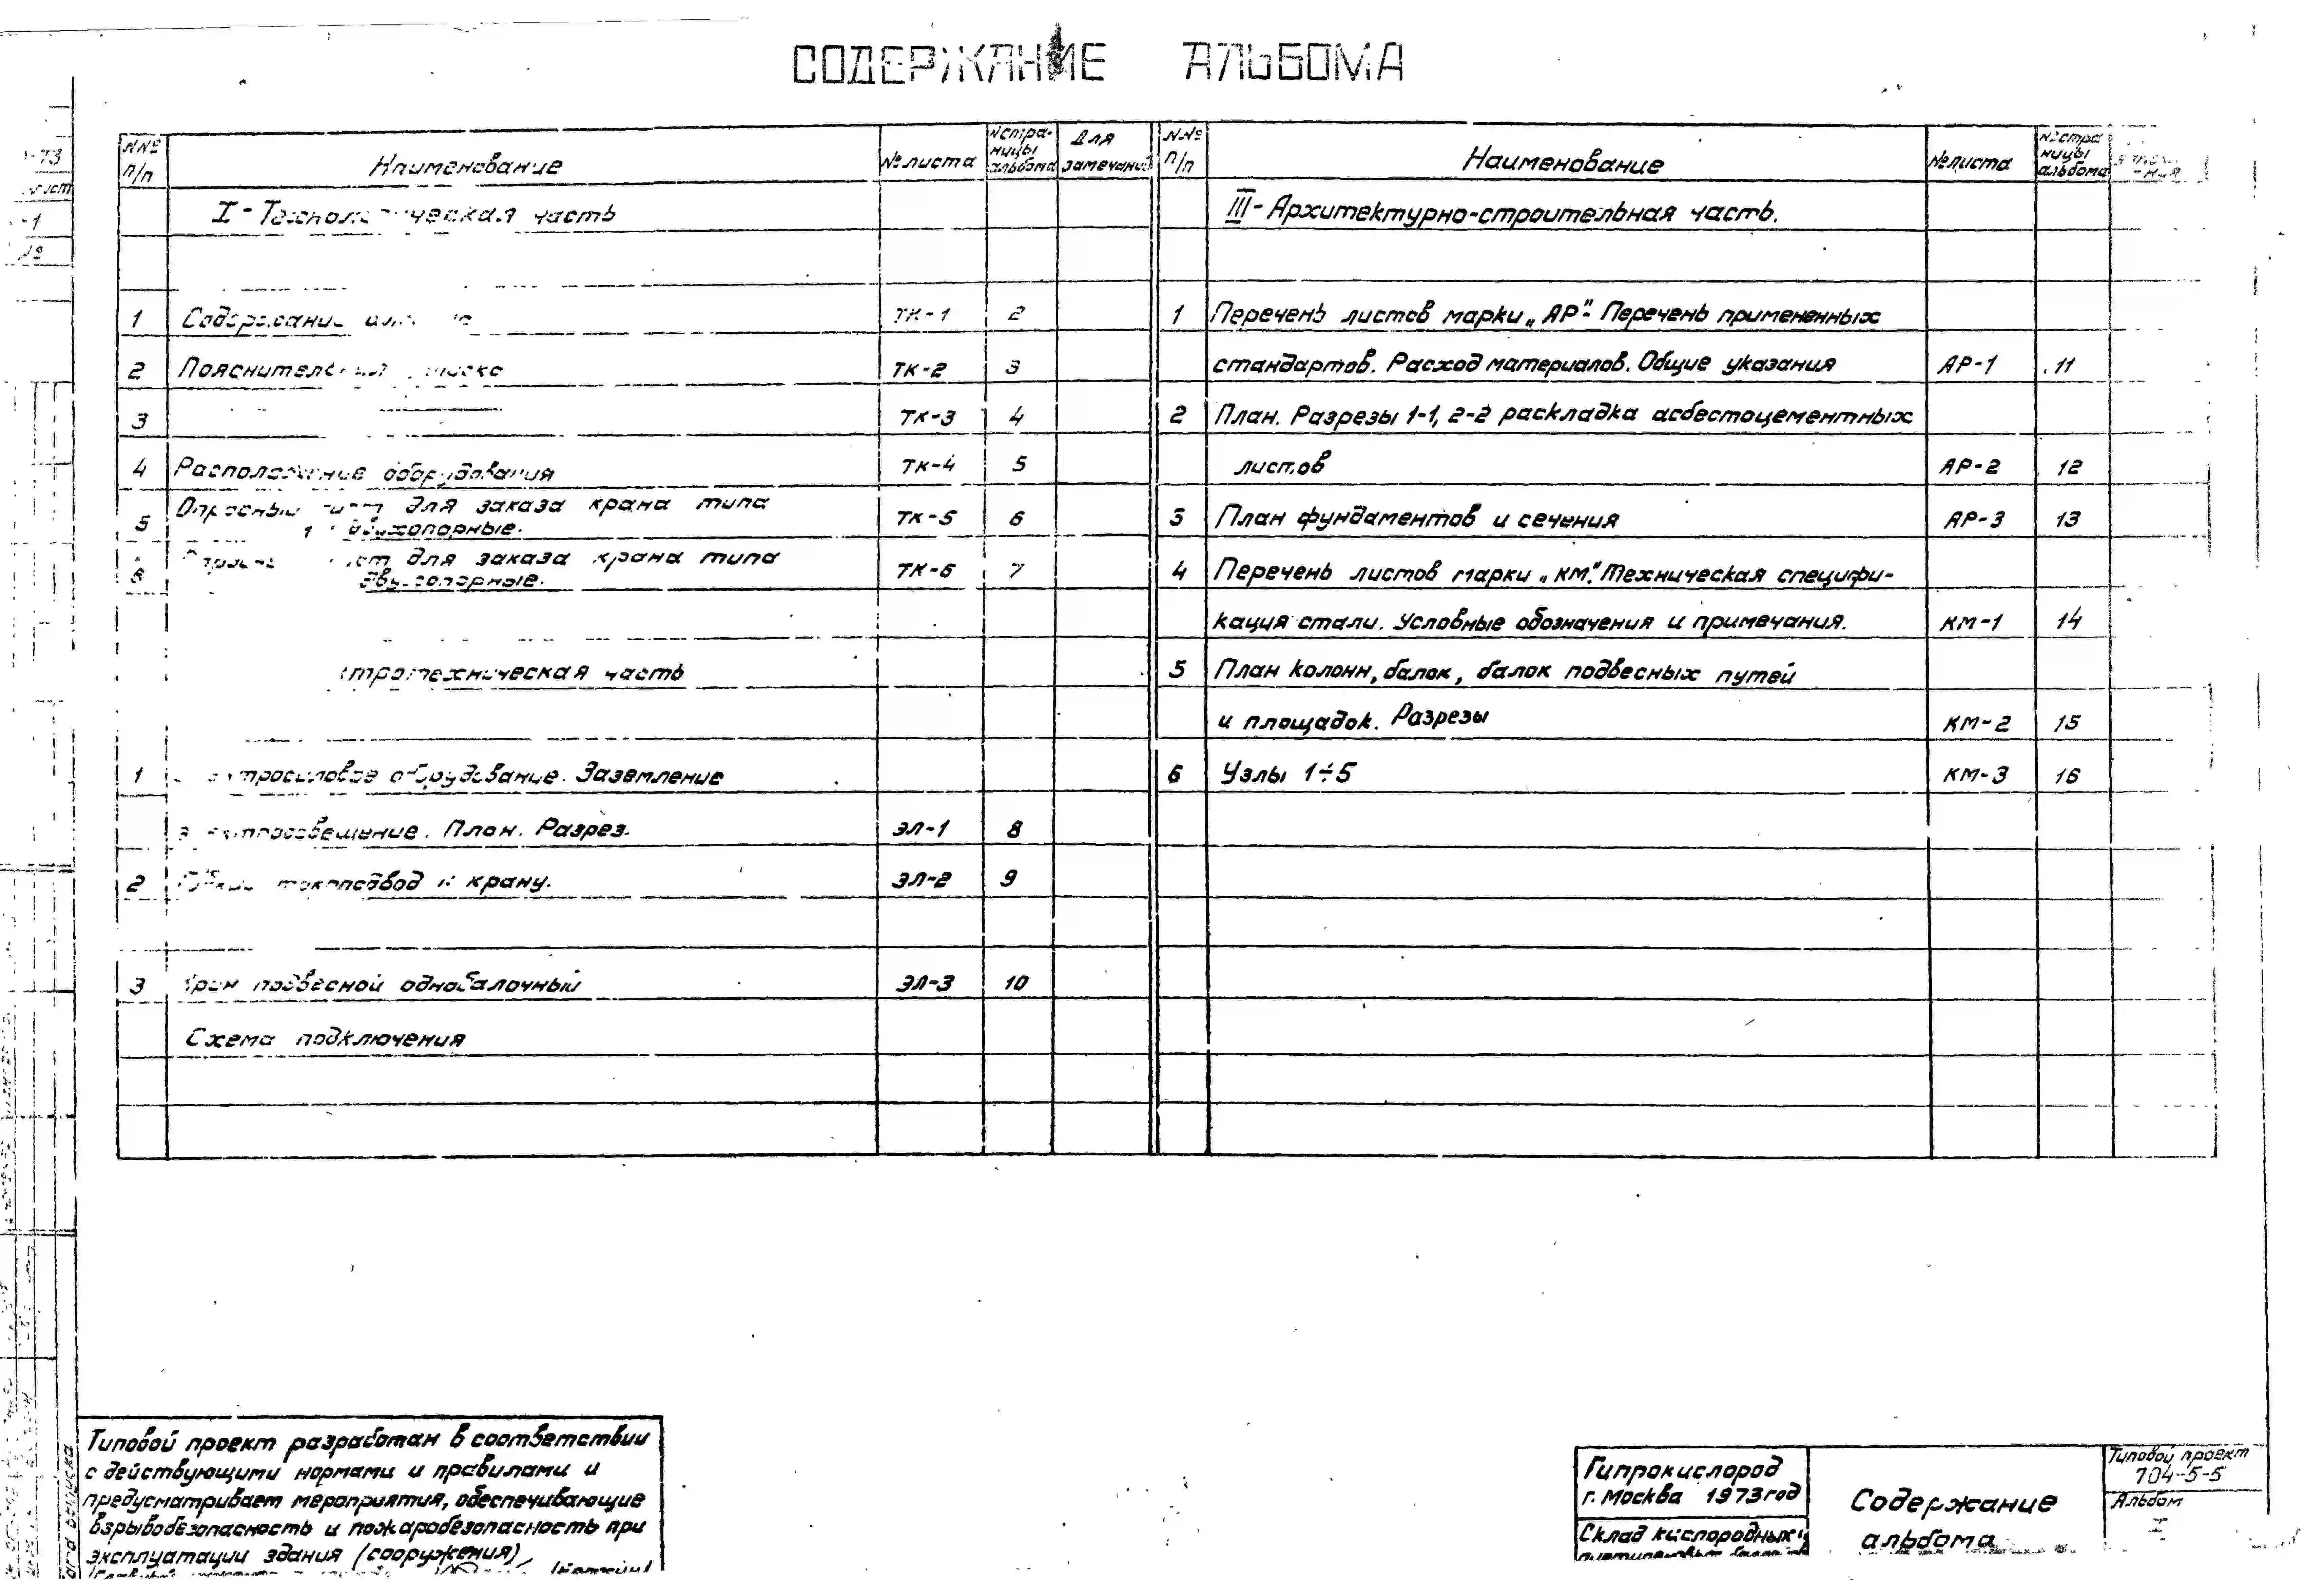 СОДЕРЖАНИЕ АЛЬБОМА
№№ п/п Наименование № листа № страницы альбома Для замечаний
I - Технологическая часть
1 Содержание ТК-1 2
2 Пояснительная ТК-2 3
3 ТК-3 4
4 Расположение оборудования ТК-4 5
5 Опросный лист для заказа крана типа
двухопорные. ТК-5 6
6 лист для заказа крана типа
двухопорные. ТК-6 7
техническая часть
1 оборудование. Заземление
План. Разрез. ЭЛ-1 8
2 токоподвод к крану. ЭЛ-2 9
3 Кран подвесной однобалочный ЭЛ-3 10
Схема подключения
№№ п/п Наименование № листа № страницы альбома
III - Архитектурно-строительная часть.
1 Перечень листов марки „АР". Перечень примененных
стандартов. Расход материалов. Общие указания АР-1 11
2 План. Разрезы 1-1, 2-2 раскладка асбестоцементных
листов АР-2 12
3 План фундаментов и сечения АР-3 13
4 Перечень листов марки „КМ". Техническая специфи-
кация стали. Условные обозначения и примечания. КМ-1 14
5 План колонн, балок, балок подвесных путей
и площадок. Разрезы КМ-2 15
6 Узлы 1÷5 КМ-3 16
Типовой проект разработан в соответствии
с действующими нормами и правилами и
предусматривает мероприятия, обеспечивающие
взрывобезопасность и пожаробезопасность при
эксплуатации здания (сооружения)
Гипрокислород
г. Москва 1973 год
Склад кислородных
Содержание
альбома
Типовой проект
704-5-5
Альбом
I